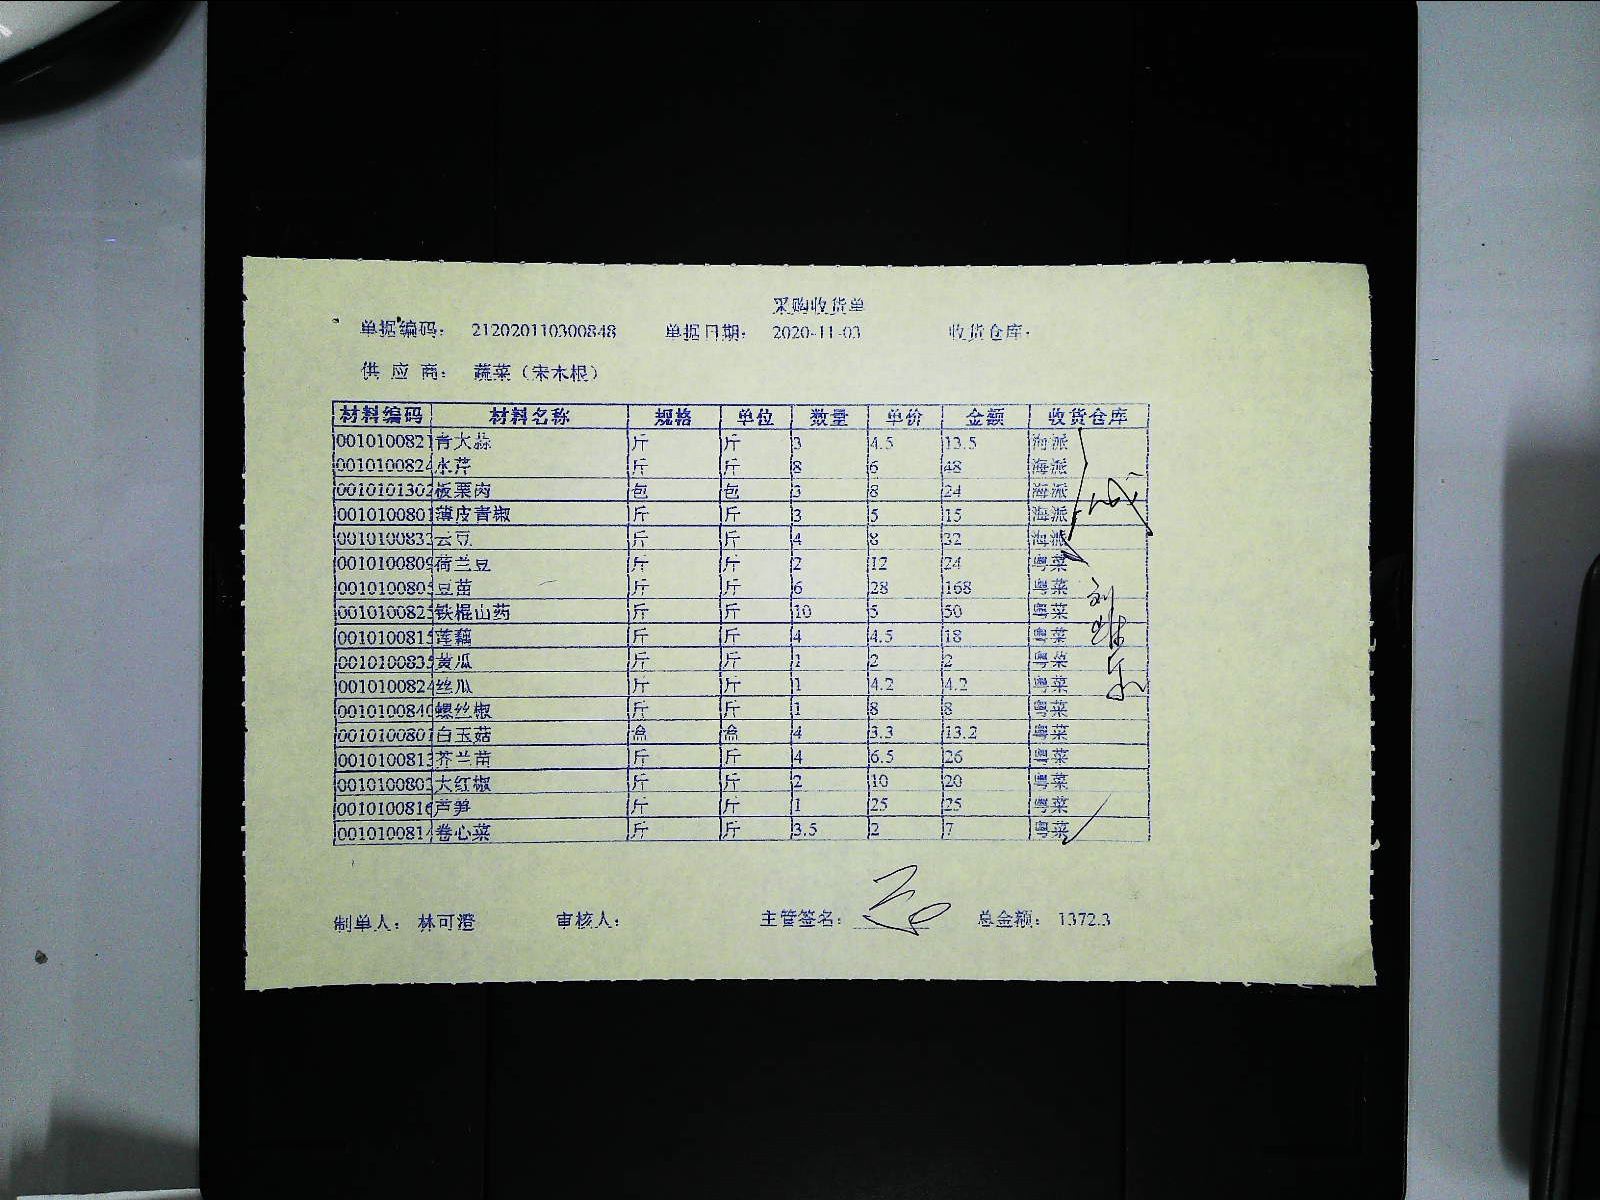 采购收货单
单据编码： 212020110300848 单据日期： 2020-11-03 收货仓库：
供 应 商： 蔬菜（宋木根）
材料编码 材料名称 规格 单位 数量 单价 金额 收货仓库
001010082 青大蒜 斤 斤 3 4.5 13.5 海派
001010082 水芹 斤 斤 8 6 48 海派
001010130 板栗肉 包 包 3 8 24 海派
001010080 薄皮青椒 斤 斤 3 5 15 海派
001010083 云豆 斤 斤 4 8 32 海派
001010080 荷兰豆 斤 斤 2 12 24 粤菜
001010080 豆苗 斤 斤 6 28 168 粤菜
001010082 铁棍山药 斤 斤 10 5 50 粤菜
001010081 莲藕 斤 斤 4 4.5 18 粤菜
001010083 黄瓜 斤 斤 1 2 2 粤菜
001010082 丝瓜 斤 斤 1 4.2 4.2 粤菜
001010084 螺丝椒 斤 斤 1 8 8 粤菜
001010080 白玉菇 盒 盒 4 3.3 13.2 粤菜
001010081 芥兰苗 斤 斤 4 6.5 26 粤菜
001010080 大红椒 斤 斤 2 10 20 粤菜
001010081 芦笋 斤 斤 1 25 25 粤菜
001010081 卷心菜 斤 斤 3.5 2 7 粤菜
制单人： 林可澄 审核人： 主管签名： 总金额： 1372.3